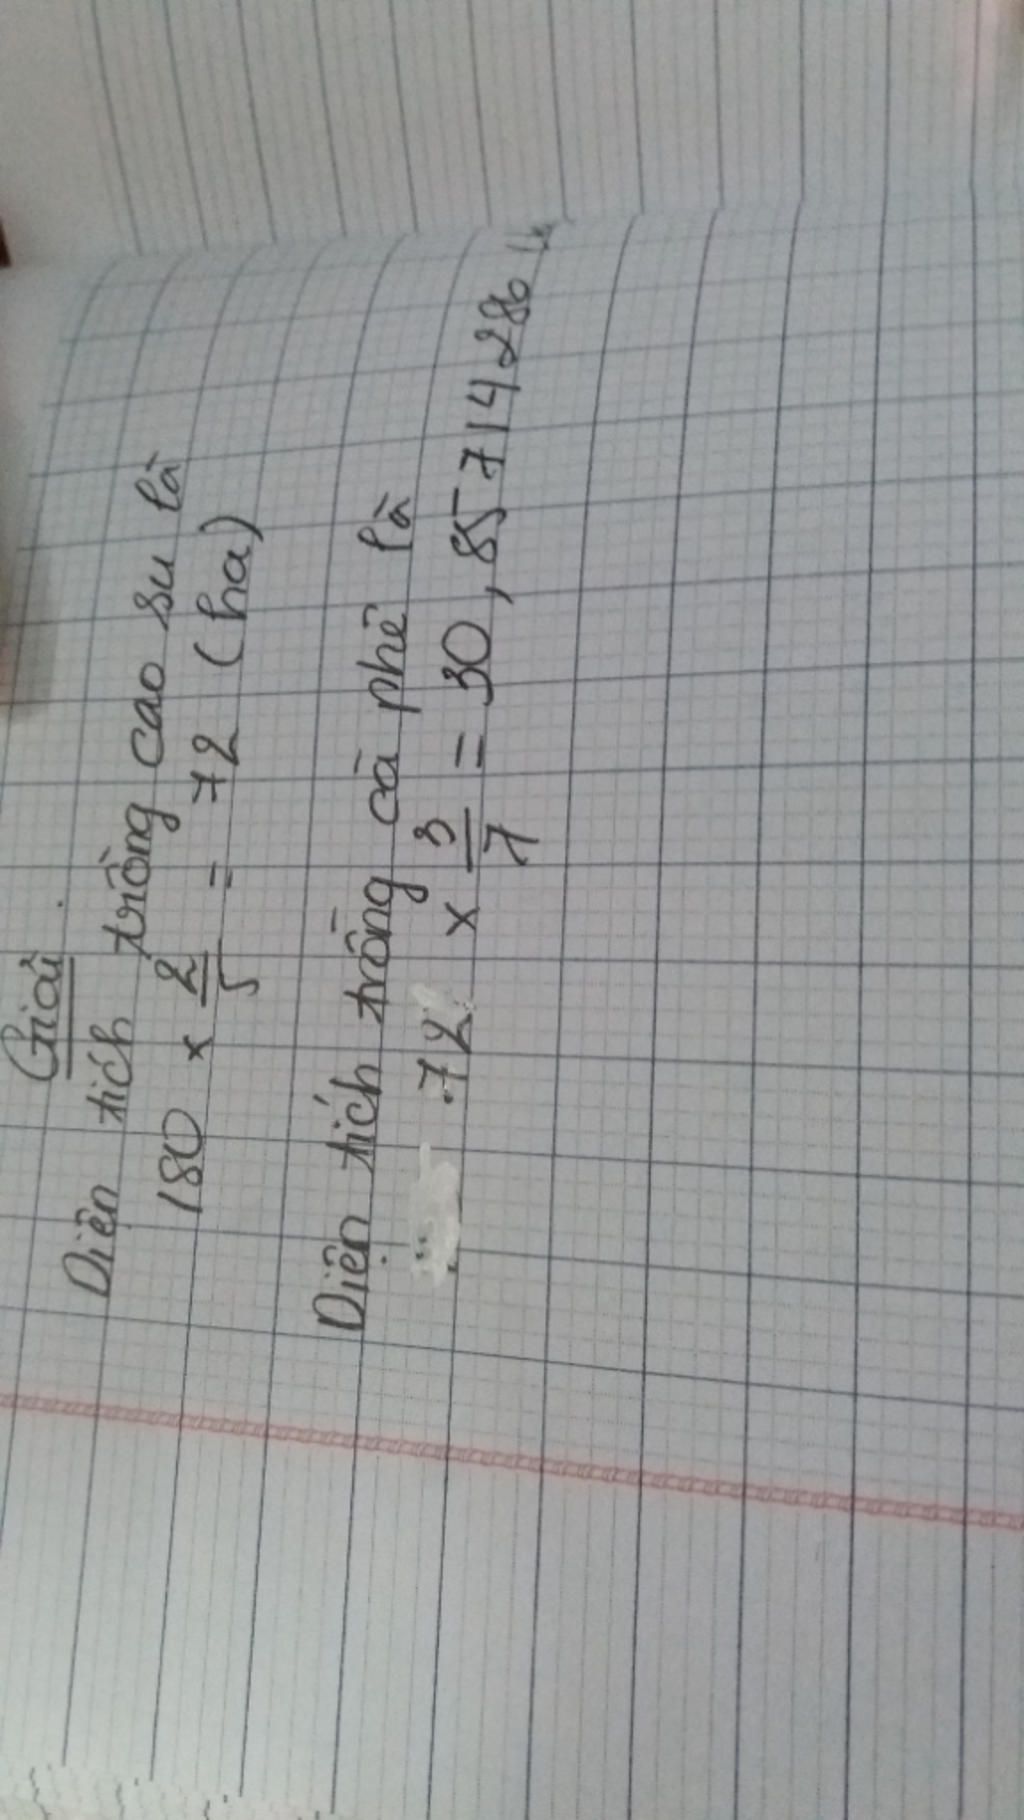 Giải
Diện tích trồng cao su là
180 x 2/5 = 72 (ha)
Diện tích trồng cà phê là
72 x 3/7 = 30,85714286